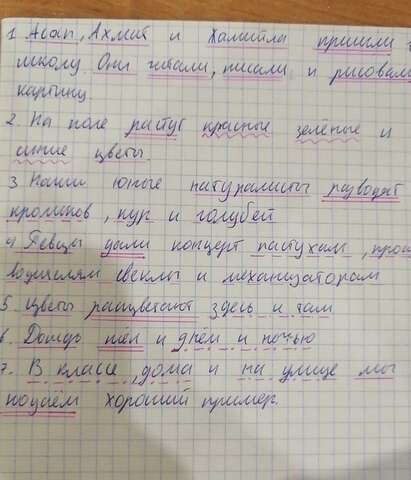 1 Асан, Ахмат и Халитла пришли в
школу. Они читали, писали и рисовали
картину.
2. На поле растут красные зелёные и
синие цветы.
3 Наши юные натуралисты разводят
кроликов, кур и голубей
4 Певцы дали концерт пастухам, произ
водителям свеклы и механизаторам
5. Цветы расцветают здесь и там
6. Дождь шёл и днём и ночью
7. В классе, дома и на улице мы
ющаем хороший пример.